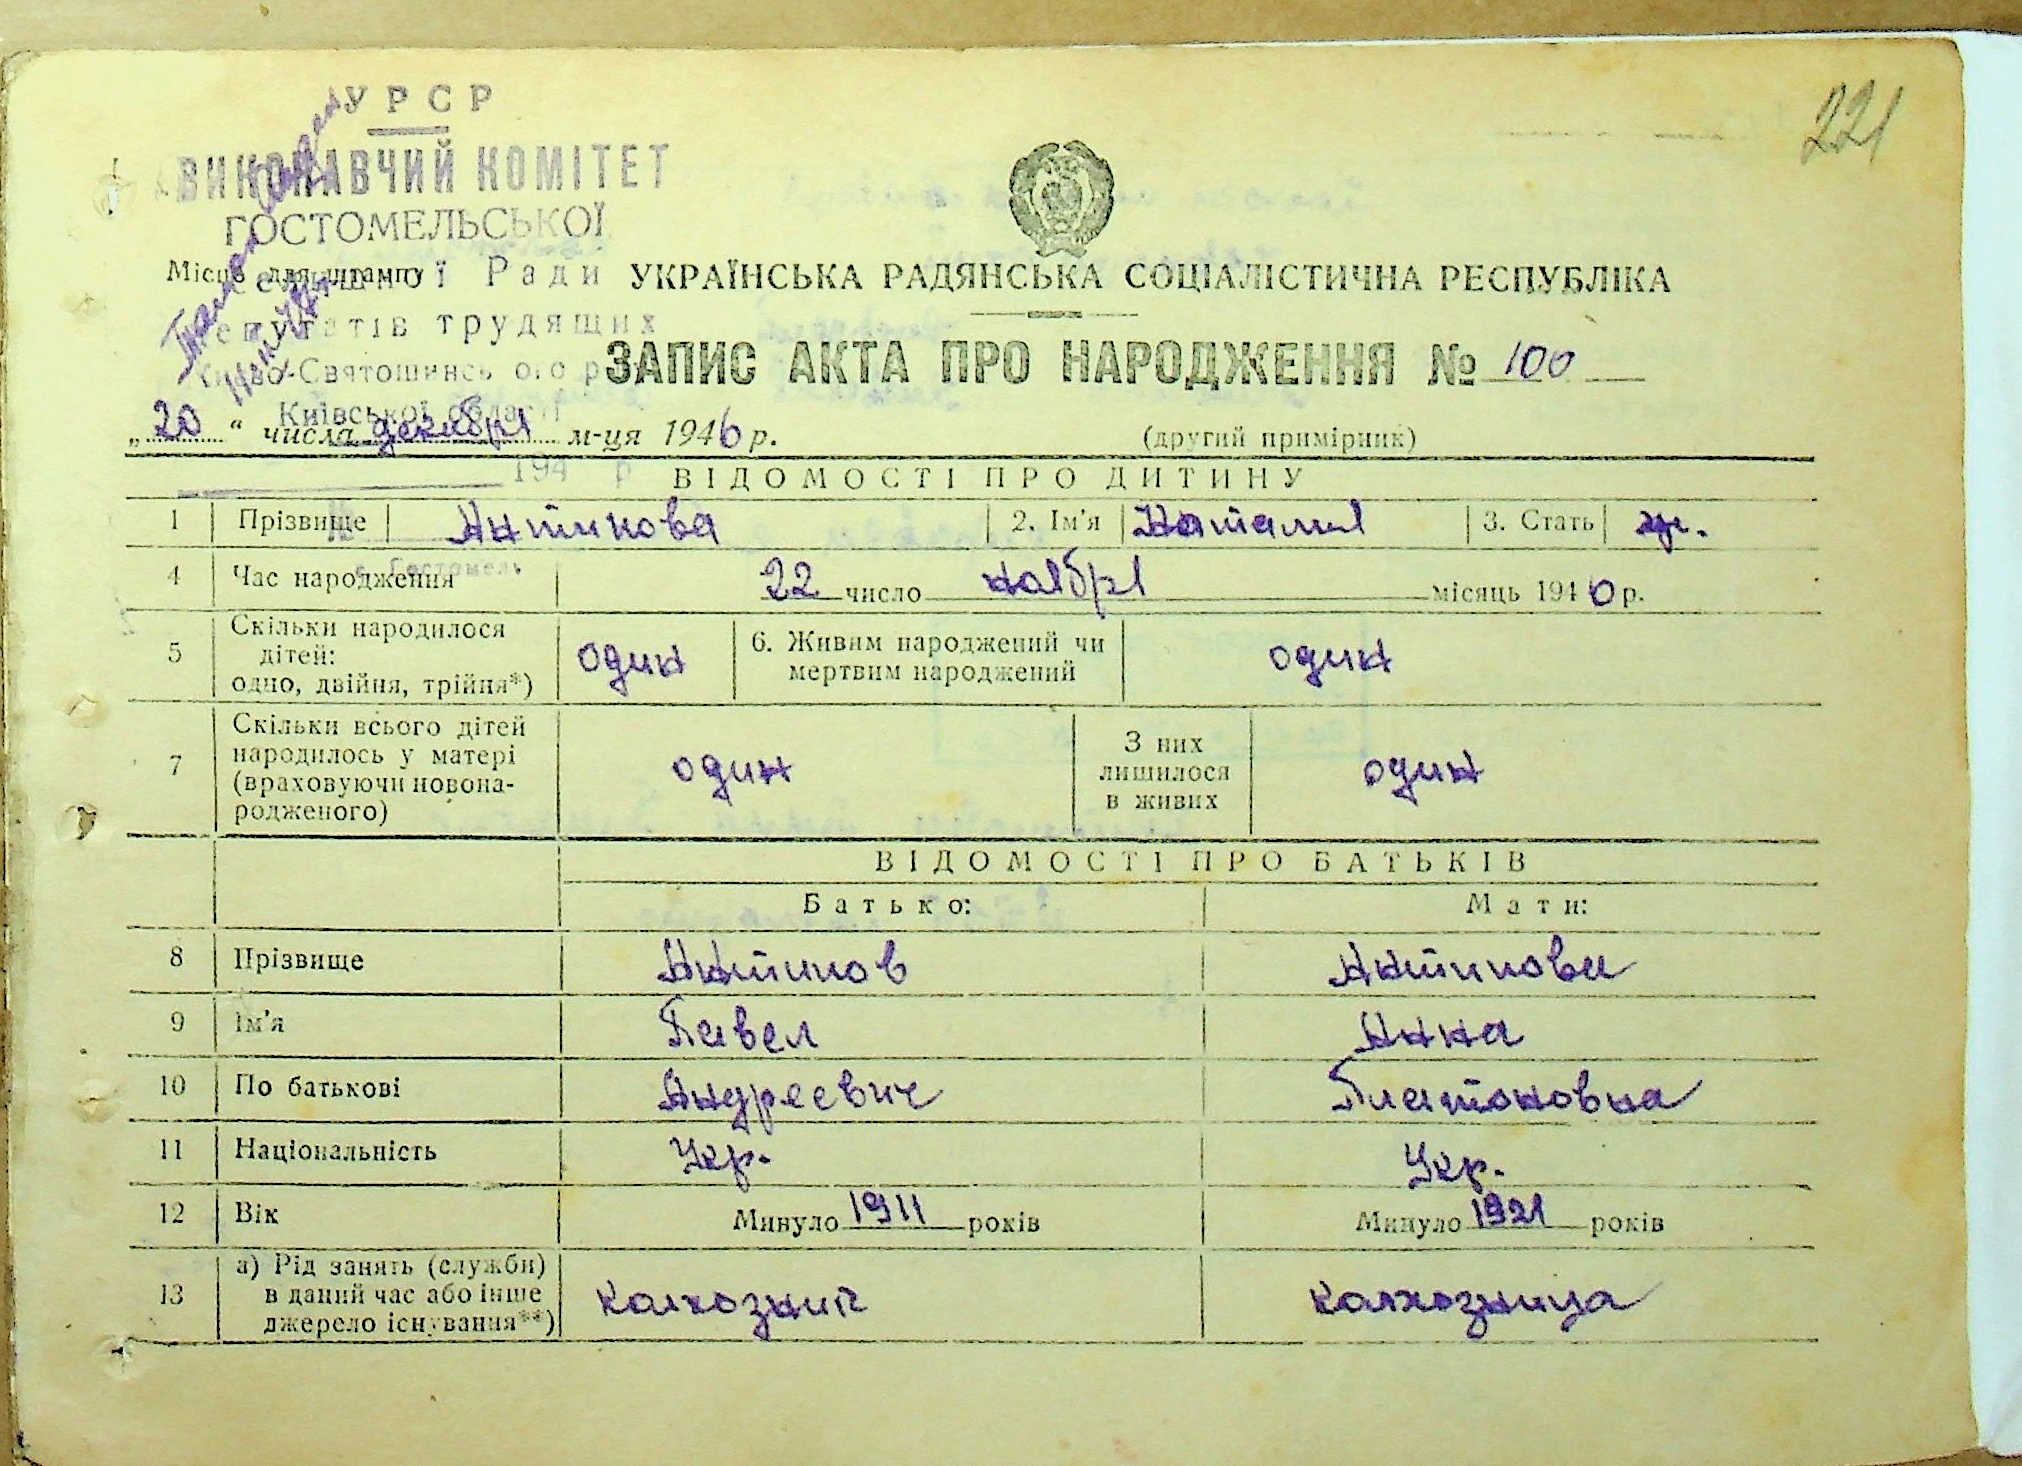 221
УРСР
ВИКОНАВЧИЙ КОМІТЕТ
ГОСТОМЕЛЬСЬКОЇ
Місце для штампу
селищної Ради
депутатів трудящих
Києво-Святошинського р
Київської області
194 р
№
с. Гостомель
УКРАЇНСЬКА РАДЯНСЬКА СОЦІАЛІСТИЧНА РЕСПУБЛІКА
ЗАПИС АКТА ПРО НАРОДЖЕННЯ № 100
„20“ числа декабря м-ця 1946 р.
(другий примірник)
ВІДОМОСТІ ПРО ДИТИНУ
1 Прізвище Антипова 2. Ім'я Наталия 3. Стать ж.
4 Час народження 22 число ноября місяць 1940 р.
5 Скільки народилося дітей: одно, двійня, трійня*) один 6. Живим народжений чи мертвим народжений один
7 Скільки всього дітей народилось у матері (враховуючи новонародженого) один З них лишилося в живих один
ВІДОМОСТІ ПРО БАТЬКІВ
Батько: Мати:
8 Прізвище Антипов Антипова
9 Ім'я Павел Анна
10 По батькові Андреевич Платоновна
11 Національність Укр. Укр.
12 Вік Минуло 1911 років Минуло 1921 років
13 а) Рід занять (служби) в даний час або інше джерело існування**) колхозник колхозница